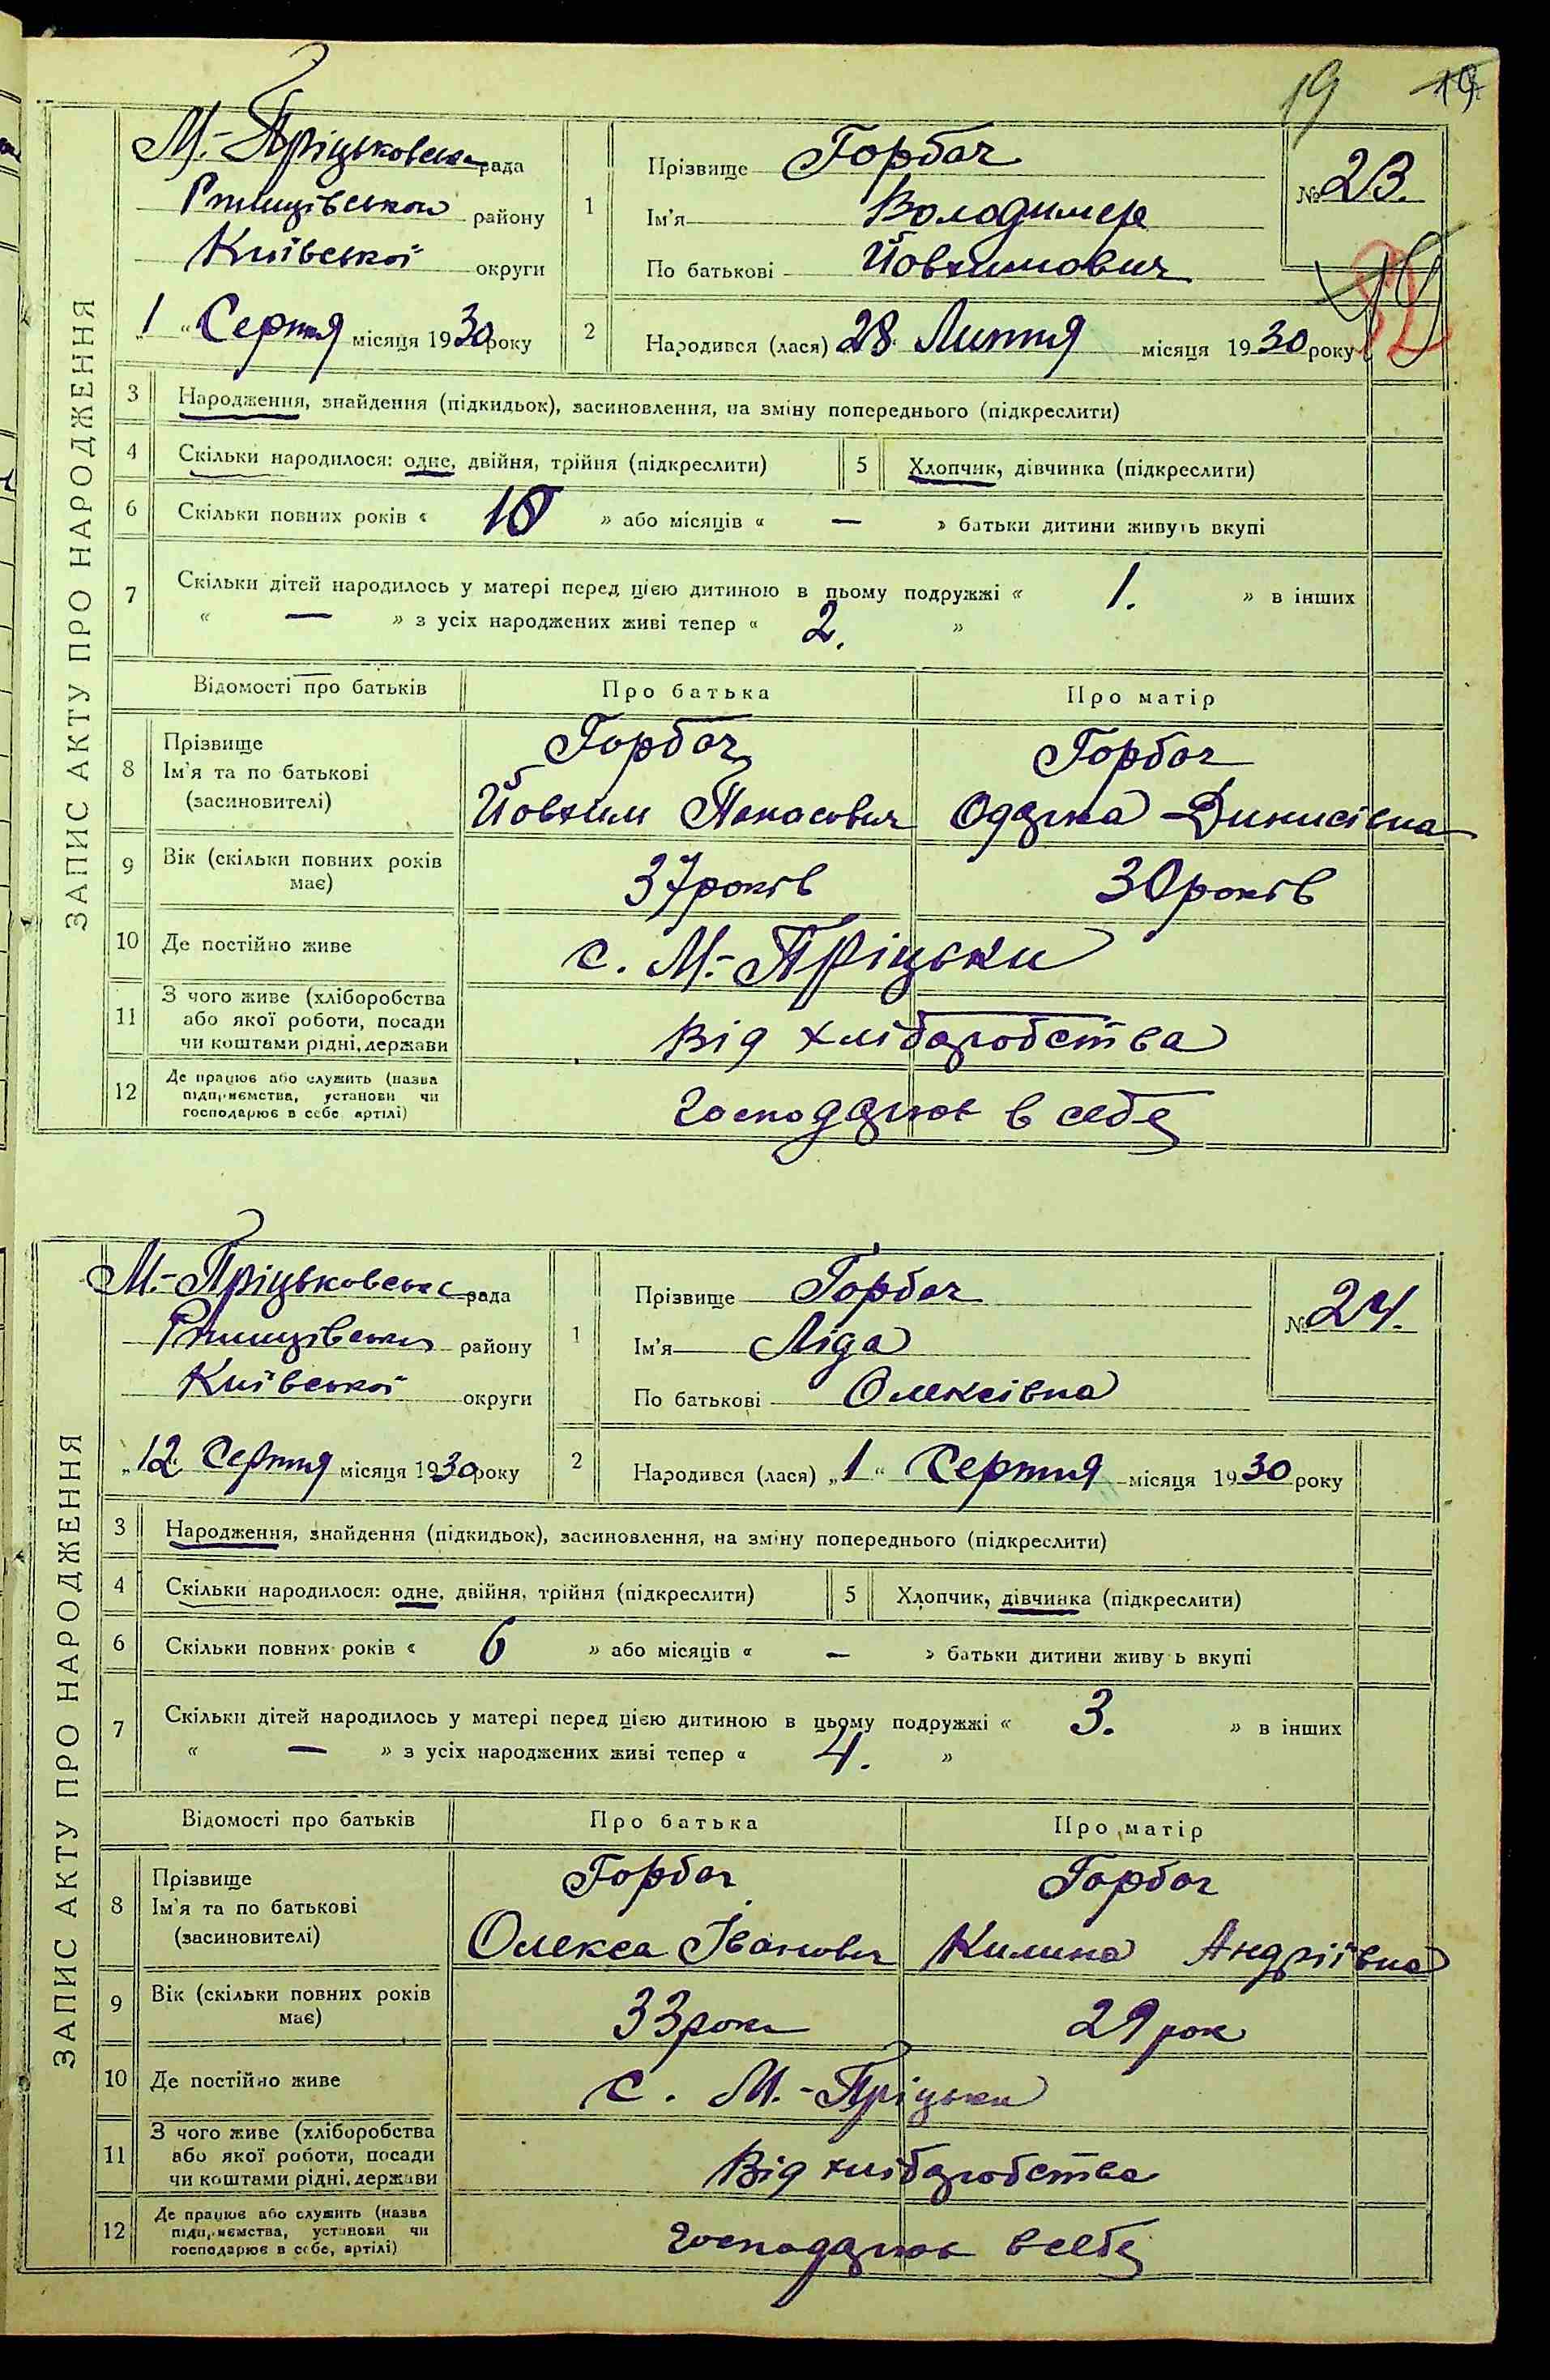 19 19
ЗАПИС АКТУ ПРО НАРОДЖЕННЯ
М.-Пріцьковська рада
Ржищівського району
Київської округи
„1“ Серпня місяця 1930 року
1
Прізвище Горбач
Ім'я Володимер
По батькові Йовхимович
№ 23.
2
Народився (лася) 28 Липня місяця 1930 року
3 Народження, знайдення (підкидьок), засиновлення, на зміну попереднього (підкреслити)
4 Скільки народилося: одне, двійня, трійня (підкреслити) 5 Хлопчик, дівчинка (підкреслити)
6 Скільки повних років « 10 » або місяців « — » батьки дитини живуть вкупі
7 Скільки дітей народилось у матері перед цією дитиною в цьому подружжі « 1. » в інших
« — » з усіх народжених живі тепер « 2. »
Відомості про батьків Про батька Про матір
8 Прізвище Горбач Горбач
Ім'я та по батькові Йовхим Панасович Одарка Динисівна
(засиновителі)
9 Вік (скільки повних років має) 37 років 30 років
10 Де постійно живе с. М.-Пріцьки
11 З чого живе (хліборобства
або якої роботи, посади
чи коштами рідні, держави Від хліборобства
12 Де працює або служить (назва
підприємства, установи чи
господарює в себе артілі) господарює в себе
ЗАПИС АКТУ ПРО НАРОДЖЕННЯ
М.-Пріцьковська рада
Ржищівськи району
Київської округи
„12“ Серпня місяця 1930 року
1
Прізвище Горбач
Ім'я Ліда
По батькові Олексівна
№ 24.
2
Народився (лася) „1“ Серпня місяця 1930 року
3 Народження, знайдення (підкидьок), засиновлення, на зміну попереднього (підкреслити)
4 Скільки народилося: одне, двійня, трійня (підкреслити) 5 Хлопчик, дівчинка (підкреслити)
6 Скільки повних років « 6 » або місяців « — » батьки дитини живуть вкупі
7 Скільки дітей народилось у матері перед цією дитиною в цьому подружжі « 3. » в інших
« — » з усіх народжених живі тепер « 4. »
Відомості про батьків Про батька Про матір
8 Прізвище Горбач Горбач
Ім'я та по батькові Олекса Іванович Килина Андріївна
(засиновителі)
9 Вік (скільки повних років має) 33 роки 29 рок
10 Де постійно живе с. М.-Пріцьки
11 З чого живе (хліборобства
або якої роботи, посади
чи коштами рідні, держави Від хліборобства
12 Де працює або служить (назва
підприємства, установи чи
господарює в себе, артілі) господарює в себе